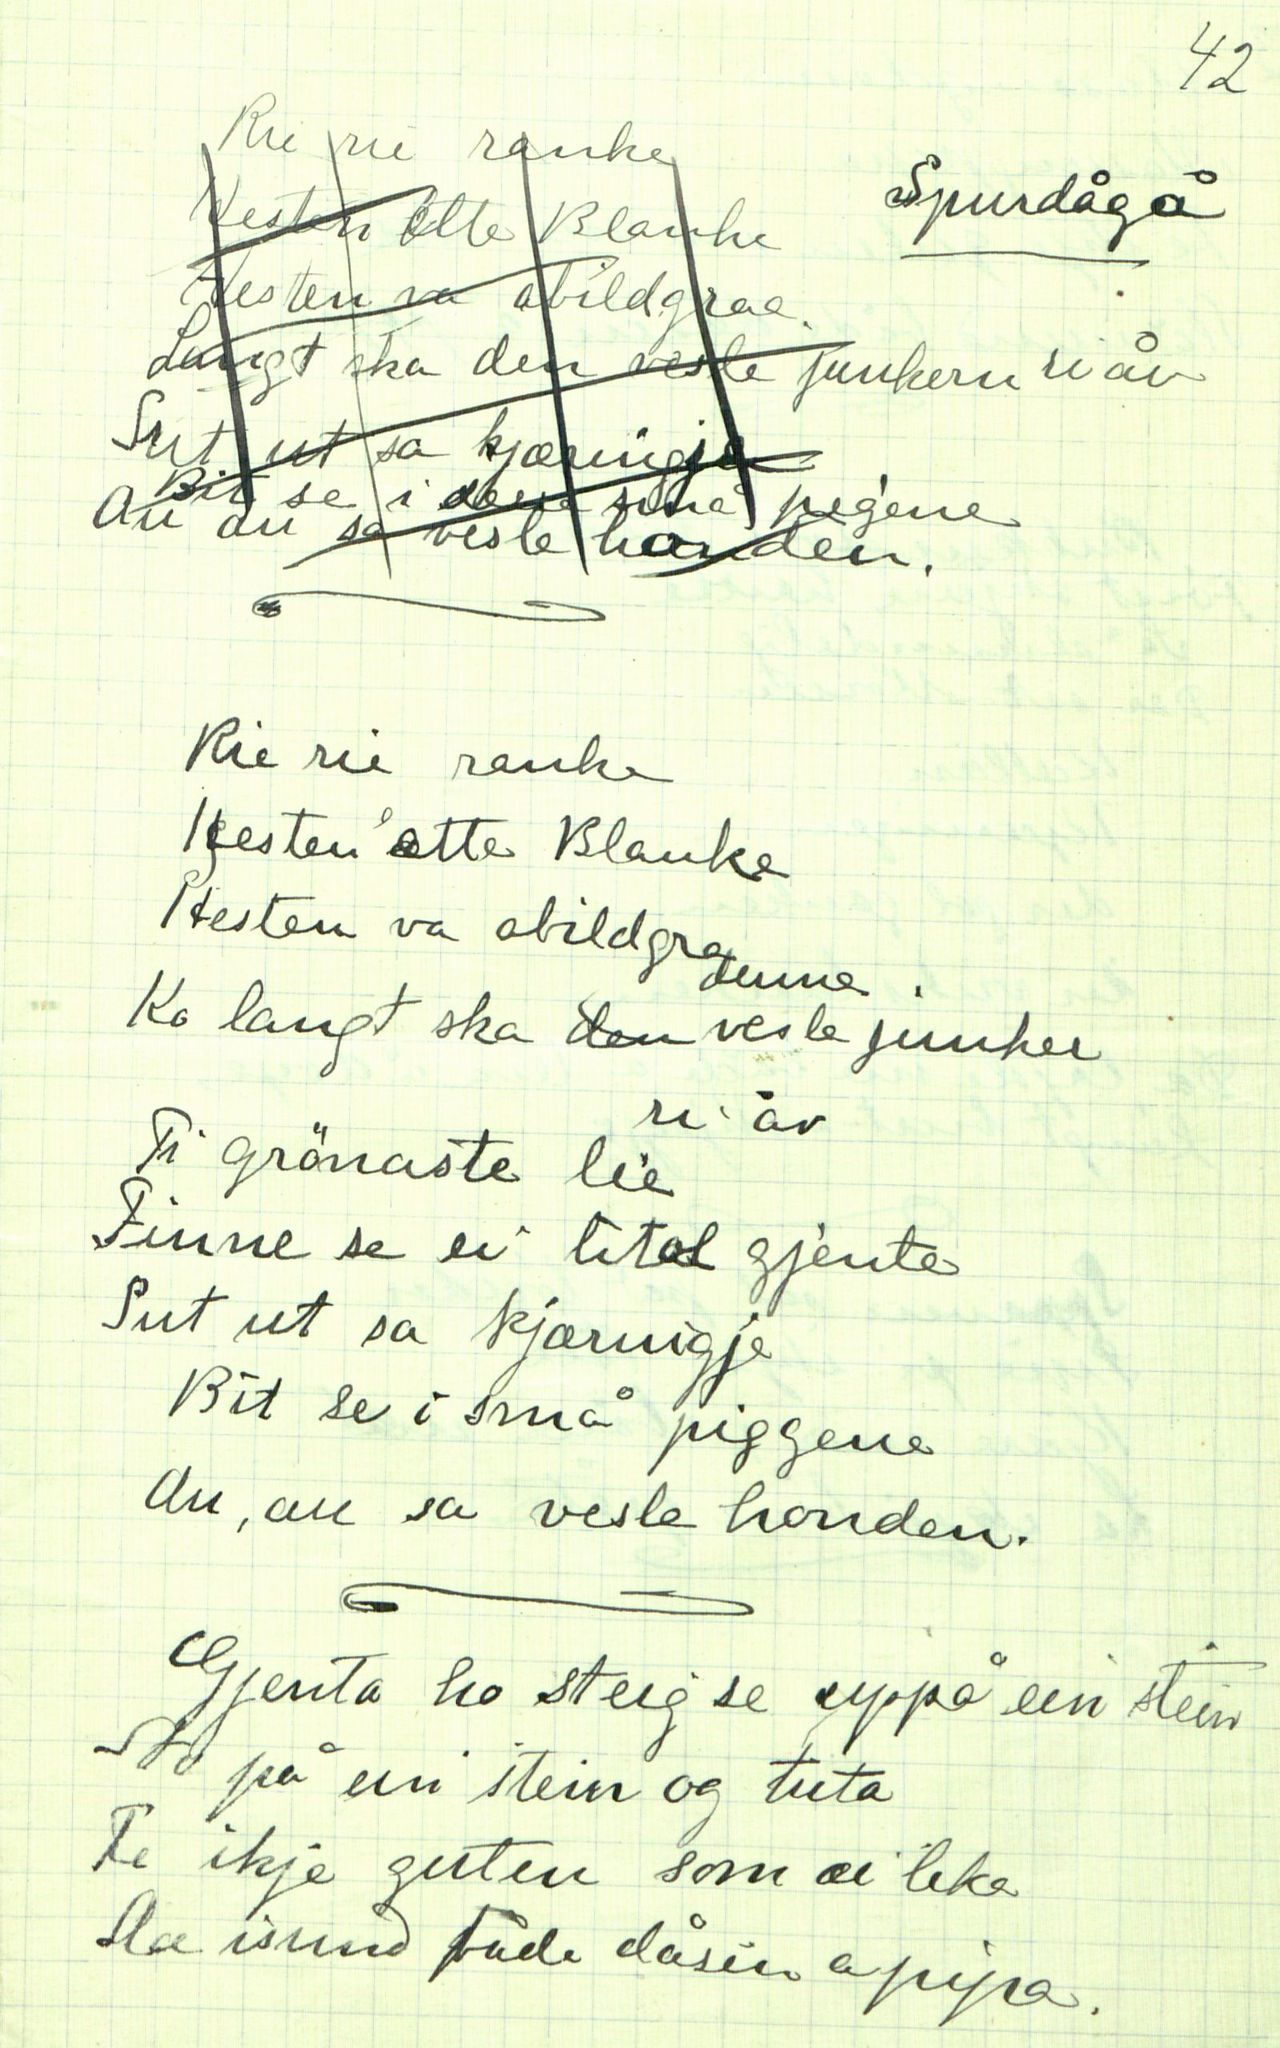 42
Rie rie ranke
Spurdågå
Hesten ette Blanke
Hesten va abildgraa.
Langt ska den vesle junkern ri åv
Sut ut sa kjæringje
Bit se i små pigene
Au au sa vesle handen.
Rie rie ranke
Hesten ette Blanke
Hesten va abildgra
denne
Ko langt ska den vesle junker
ri åv
Ti grönaste lie
Finne se ei lital gjente
Sut ut sa kjærnigje
Bit se i små piggene
Au, au sa vesle honden.
Gjenta ho steig se uppå ein stein
Sto på ein stein og tuta
Fe ikje guten som ei leka
Slæ isund både dåsin a pipa.